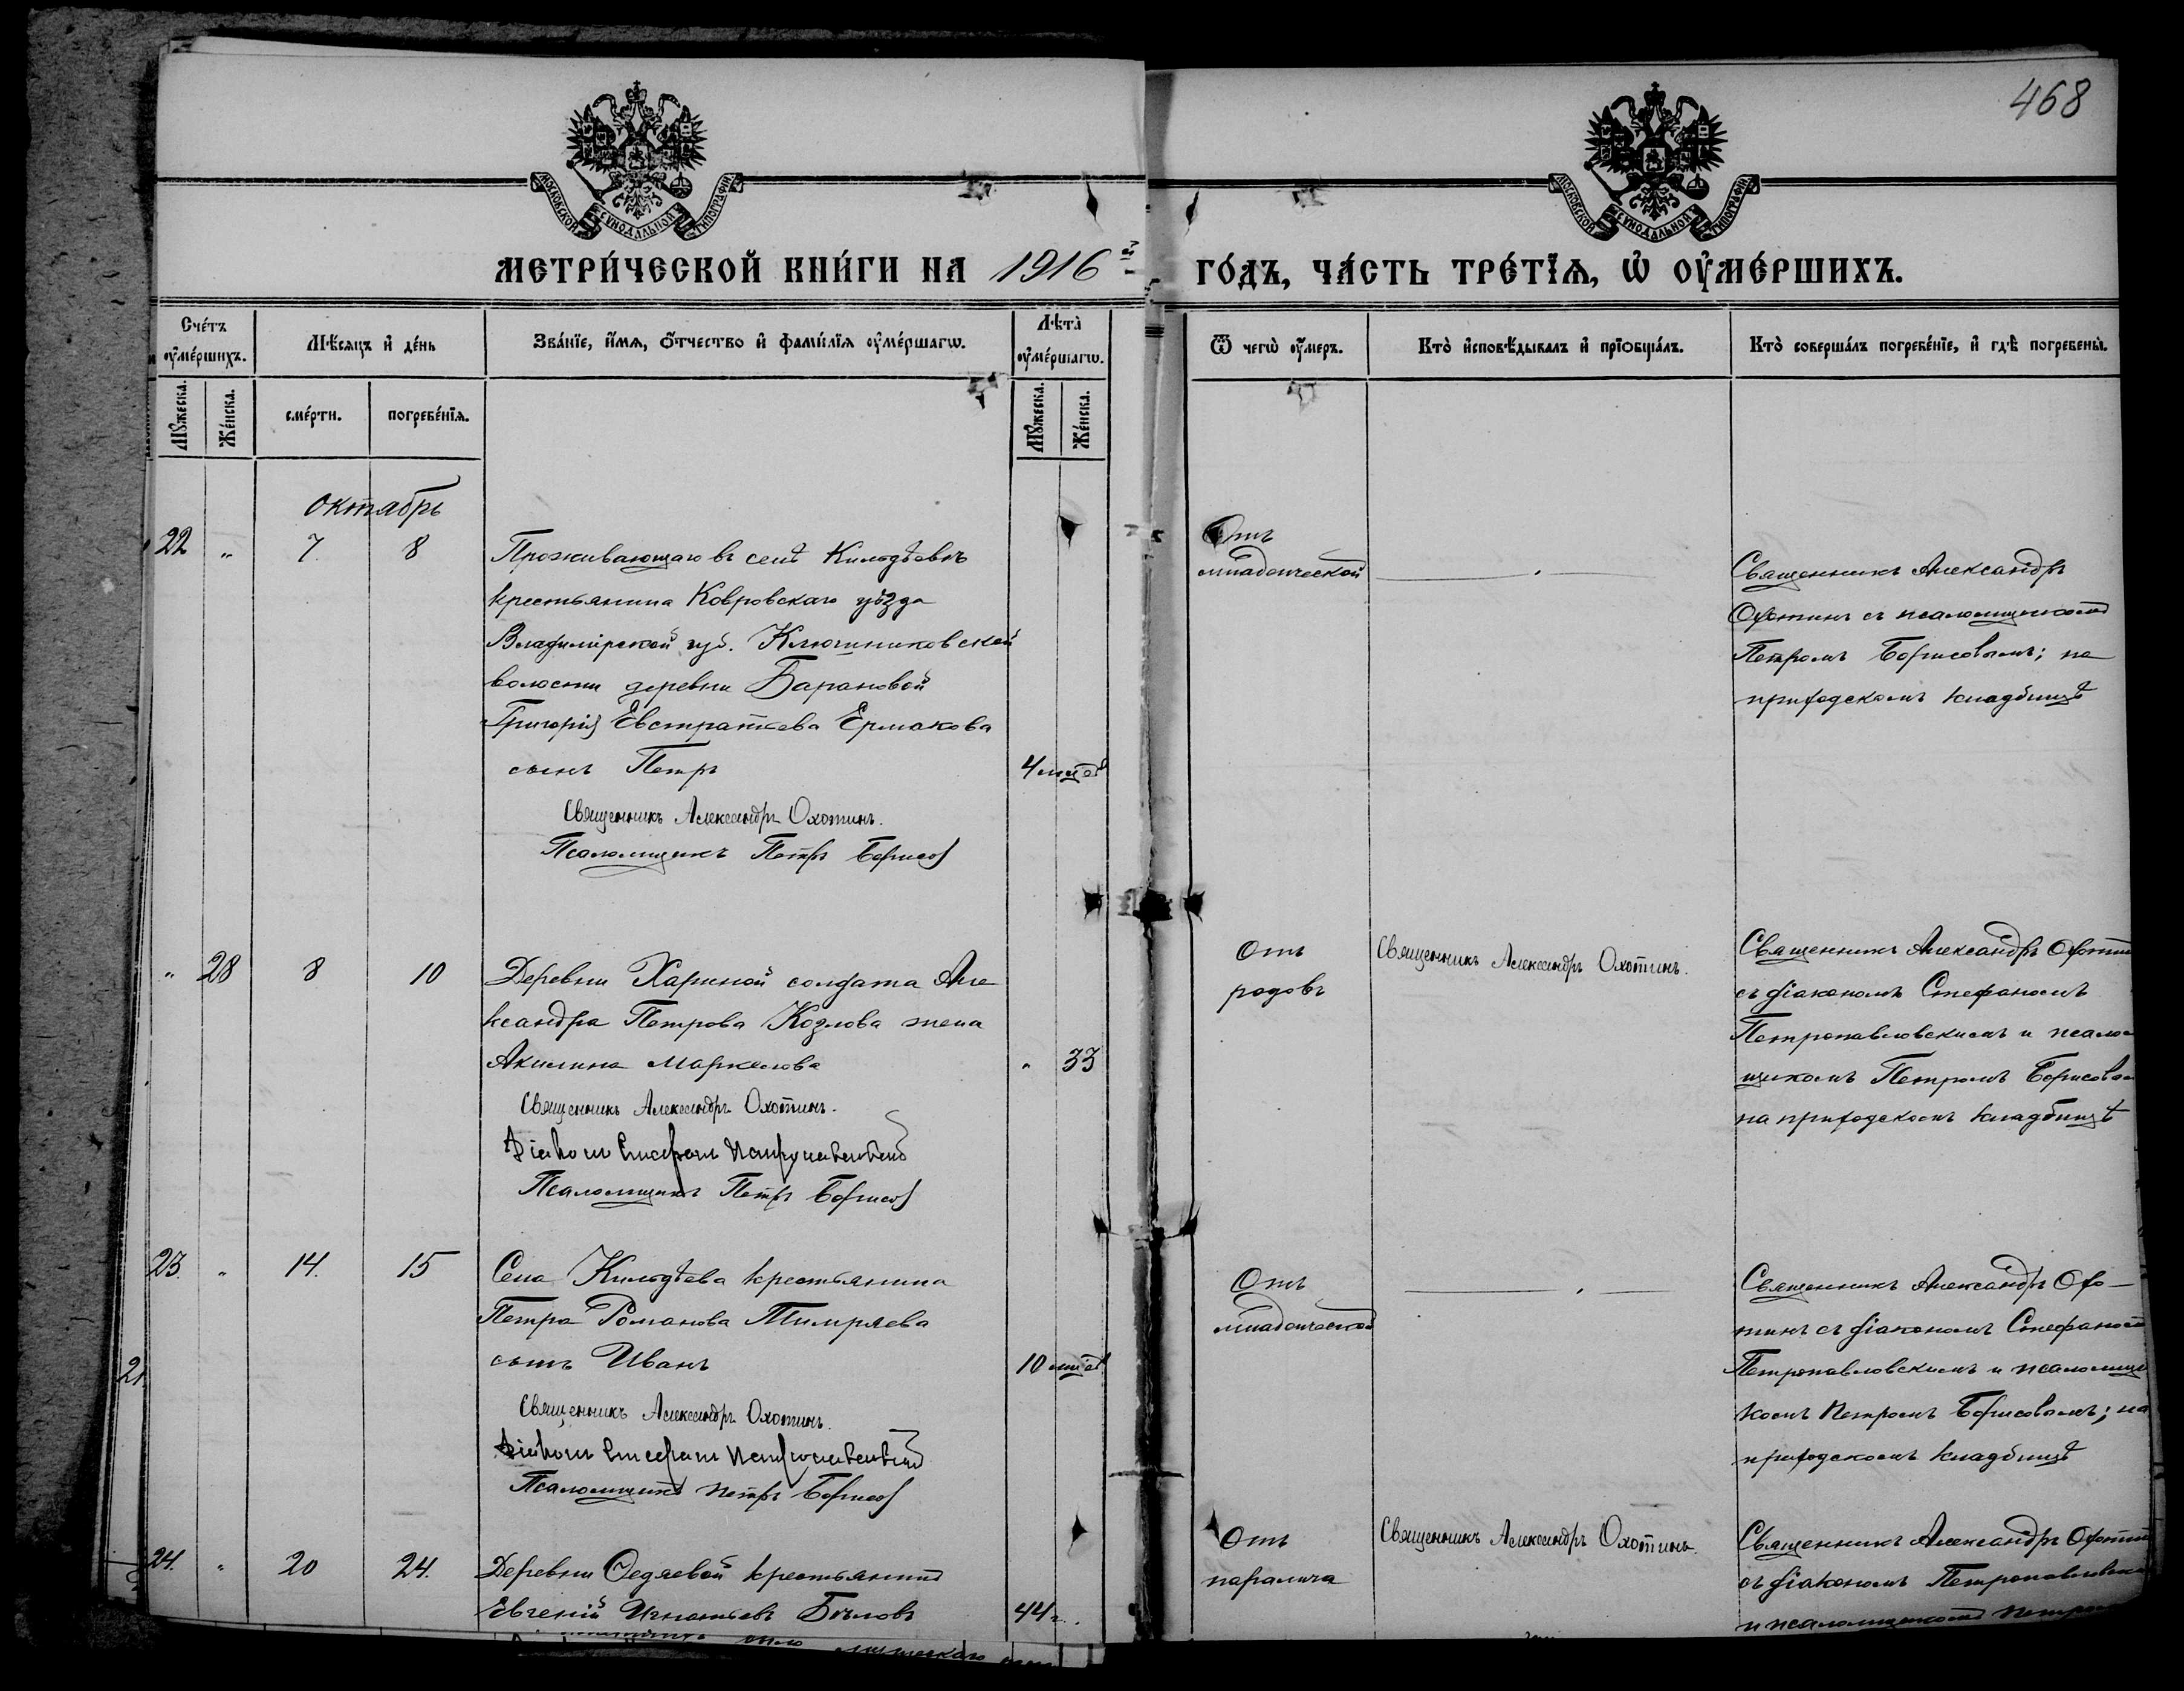 468
МОСКОВСКОЙ СУНОДАЛЬНОЙ ТИПОГРАФІИ
МОСКОВСКОЙ СУНОДАЛЬНОЙ ТИПОГРАФІИ
МЕТРИ́ЧЕСКОЙ КНИ́ГИ НА 1916й ГО́ДЪ, ЧА́СТЬ ТРЕ́ТЇѦ, Ѽ ОУ҆МЕ́РШИХЪ.
Сче́тъ оу҆ме́ршихъ.
Мѣ́сяцъ и҆ де́нь
Зва́нїе, и҆́мѧ, ѻ҆́тчество и҆ фами́лїѧ оу҆ме́ршагѡ.
Лѣта̀ оу҆ме́ршагѡ.
Ѿ чегѡ̀ оу҆́меръ.
Кто̀ и҆сповѣ́дывалъ и҆ прїѻбща́лъ.
Кто̀ соверша́лъ погребе́нїе, и҆ гдѣ̀ погребены̀.
Мꙋ́жеска. Же́нска. сме́рти. погребе́нїѧ. Мꙋ́жеска. Же́нска.
октябрь
22 „ 7 8
Проживающаго въ селѣ Кильдѣевѣ
крестьянина Ковровскаго уѣзда
Владимірской губ. Ключниковской
волости деревни Барановой
Григорія Евстратіева Ермакова
сынъ Петръ
4 мцѣв
Священникъ Александръ Охотинъ.
Псаломщикъ Петръ Борисов
Отъ
младенческой
Священникъ Александръ
Охотинъ съ псаломщикомъ
Петромъ Борисовымъ; на
приходскомъ кладбищѣ
„ 28 8 10
Деревни Хариной солдата Але
ксандра Петрова Козлова жена
Акилина Маркелова
„ 33
Священникъ Александръ Охотинъ.
Діаконъ Стефанъ Петропавловскій
Псаломщикъ Петръ Борисов
Отъ
родовъ
Священникъ Александръ Охотинъ.
Священникъ Александръ Охотин
съ діакономъ Стефаномъ
Петропавловскимъ и псалом
щикомъ Петромъ Борисовым
на приходскомъ кладбищѣ
23. „ 14. 15
Села Кильдѣева крестьянина
Петра Романова Тимряева
сынъ Иванъ
10 мцѣв
Священникъ Александръ Охотинъ.
Діаконъ Стефанъ Петропавловскій
Псаломщикъ Петръ Борисов
Отъ
младенческой
Священникъ Александръ Охо-
тинъ съ діакономъ Стефаномъ
Петропавловскимъ и псаломщи
комъ Петромъ Борисовымъ; на
приходскомъ кладбищѣ
21.
24. „ 20 24.
Деревни Федяевой крестьянинъ
Евгеній Игнатьевъ Бѣловъ
44 г.
Отъ
паралича
Священникъ Александръ Охотинъ.
Священникъ Александръ Охотин
съ діакономъ Петропавловски
и псаломщикомъ Петром